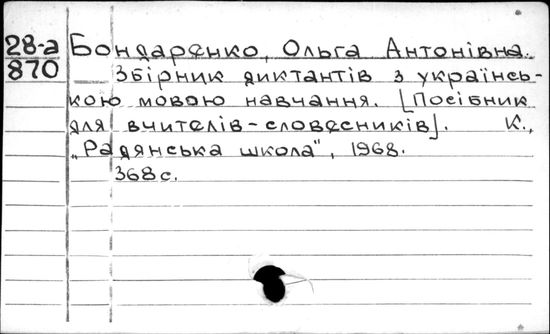 28-а Бондаренко, Ольга Антонівна.
870 Збірник диктантів з українсь-
кою мовою навчання. [Посібник
для вчителів-словесників]. К.,
„Радянська школа", 1968.
368 с.